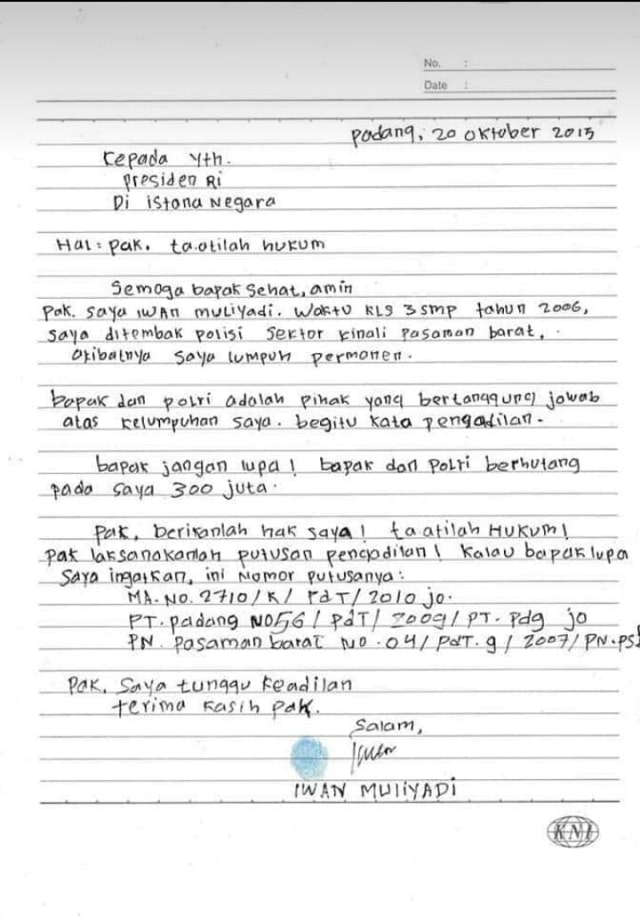 No. :
Date :
Padang, 20 Oktober 2015
Kepada Yth.
Presiden RI
Di istana Negara
Hal : pak. taatilah hukum
Semoga bapak Sehat, amin
Pak. saya IWAN muliyadi. Waktu KLS 3 SMP tahun 2006,
saya ditembak polisi Sektor Kinali Pasaman barat,.
Akibatnya saya lumpuh permanen.
bapak dan polri adalah pihak yang bertanggung jawab
atas kelumpuhan saya. begitu kata pengadilan.
bapak jangan lupa! bapak dan Polri berhutang
pada saya 300 juta.
Pak, berikanlah hak saya! taatilah HUKUM!
pak laksanakanlah putusan pengadilan! kalau bapak lupa
Saya ingatkan, ini Nomor putusanya :
MA. No. 2710 / K / PdT / 2010 jo.
PT. padang NO56 / PdT / 2009 / PT. Pdg jo
PN. Pasaman barat NO. 04 / PdT. g / 2007 / PN.PSB
Pak, Saya tunggu keadilan
terima kasih pak.
Salam,
IWAN MULIYADI
KNI